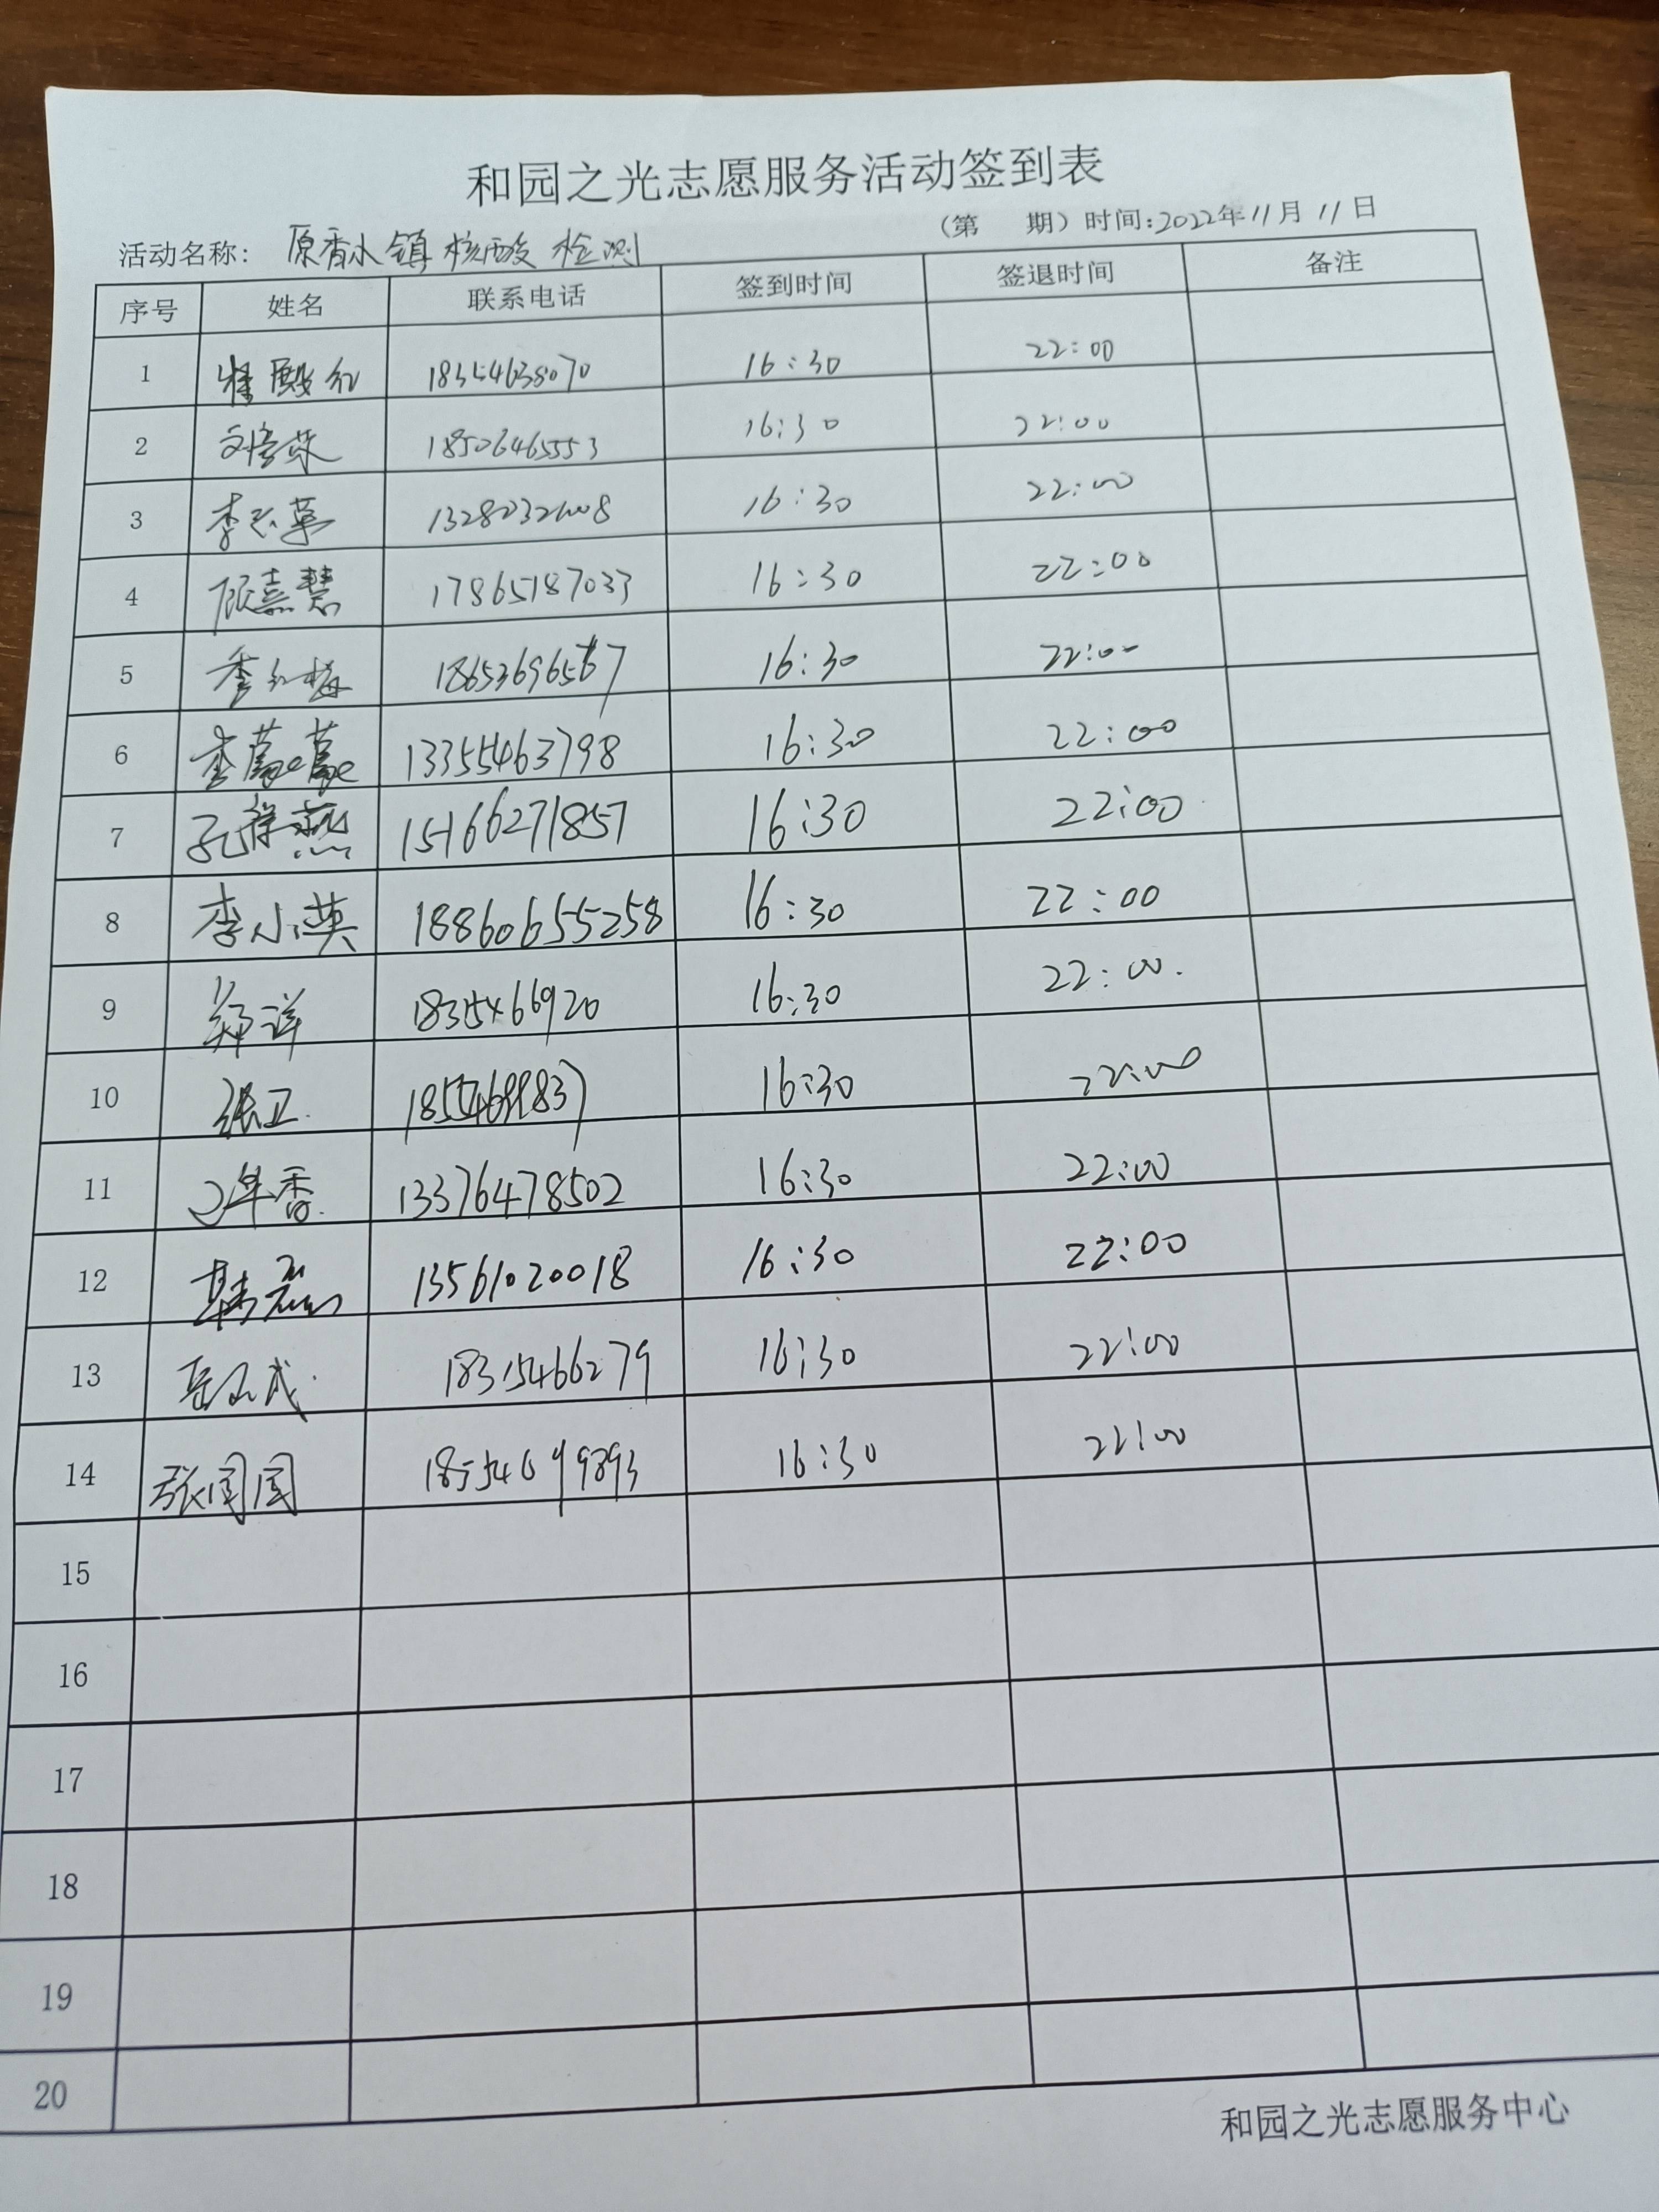 和园之光志愿服务活动签到表
(第 期) 时间:2022年11月11日
活动名称: 原香水镇核酸检测
序号 姓名 联系电话 签到时间 签退时间 备注
1 16:30 22:00
2 18506465553 16:30 22:00
3 16:30 22:00
4 17865187033 16:30 22:00
5 季红梅 16:30 22:00
6 李蒙蒙 13355463798 16:30 22:00
7 孔祥燕 15166271857 16:30 22:00
8 李小英 18860655258 16:30 22:00
9 郑洋 16:30 22:00.
10 张卫. 16:30 22:00
11 13376478502 16:30 22:00
12 13561020018 16:30 22:00
13 18315466279 16:30 22:00
14 18554699893 16:30 22:00
15
16
17
18
19
20
和园之光志愿服务中心